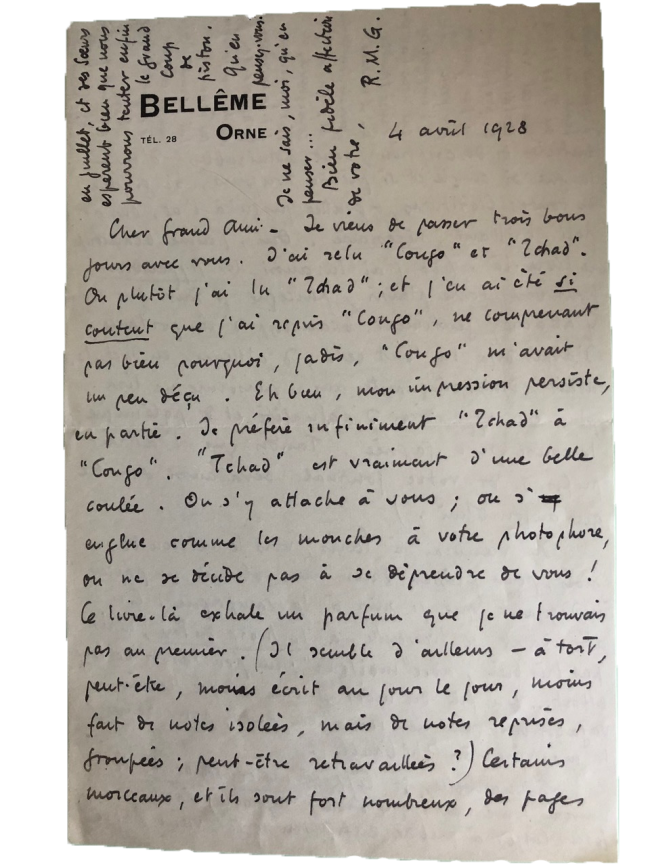 BELLÊME
ORNE
TÉL. 28
4 avril 1928
Cher grand ami - Je viens de passer trois bons
jours avec vous. J'ai relu "Congo" et "Tchad".
Ou plutôt j'ai lu "Tchad" ; et j'en ai été si
content que j'ai repris "Congo", ne comprenant
pas bien pourquoi, jadis, "Congo" m'avait
un peu déçu. Eh bien, mon impression persiste,
en partie. Je préfère infiniment "Tchad" à
"Congo". "Tchad" est vraiment d'une belle
coulée. On s'y attache à vous ; on s'
englue comme les mouches à votre photophore,
on ne se décide pas à se déprendre de vous !
Ce livre-là exhale un parfum que je ne trouvais
pas au premier. (Il semble d'ailleurs - à tort,
peut-être, moins écrit au jour le jour, moins
fait de notes isolées, mais de notes reprises,
groupées ; peut-être retravaillées ?) Certains
morceaux, et ils sont fort nombreux, des pages
en juillet, et des sœurs
espèrent bien que nous
pourrons tenter enfin
le grand
coup
de
piston.
Qu'en
pensez-vous.
Je ne sais, moi, qu'en
penser...
Bien fidèle affection
de votre,
R.M.G.